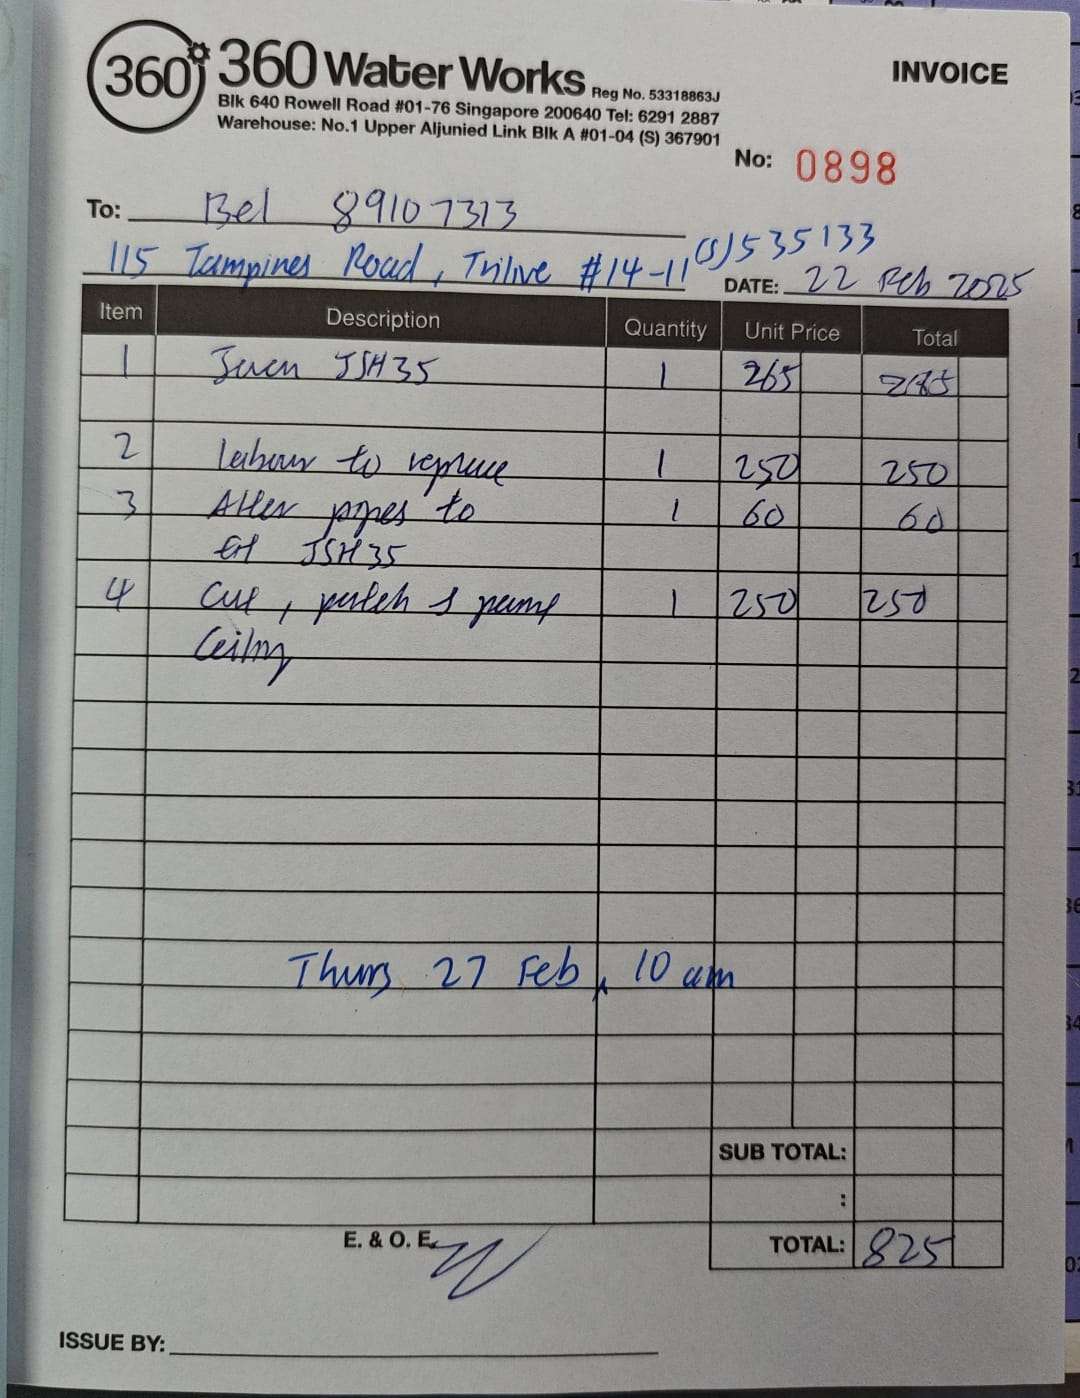 360
360 Water Works Reg No. 53318863J
INVOICE
Blk 640 Rowell Road #01-76 Singapore 200640 Tel: 6291 2887
Warehouse: No.1 Upper Aljunied Link Blk A #01-04 (S) 367901
No: 0898
To: Bel 89107313
115 Tampines Road, Trilive #14-11 (S)535133
DATE: 22 Feb 2025
Item Description Quantity Unit Price Total
1 JSH35 1 265 265
2 Labour to replace 1 250 250
3 Alter pipes to 1 60 60
fit JSH35
4 Cut, patch & 1 250 250
Ceiling
Thurs 27 Feb, 10 am
SUB TOTAL:
:
E. & O. E.
TOTAL: 825
ISSUE BY: